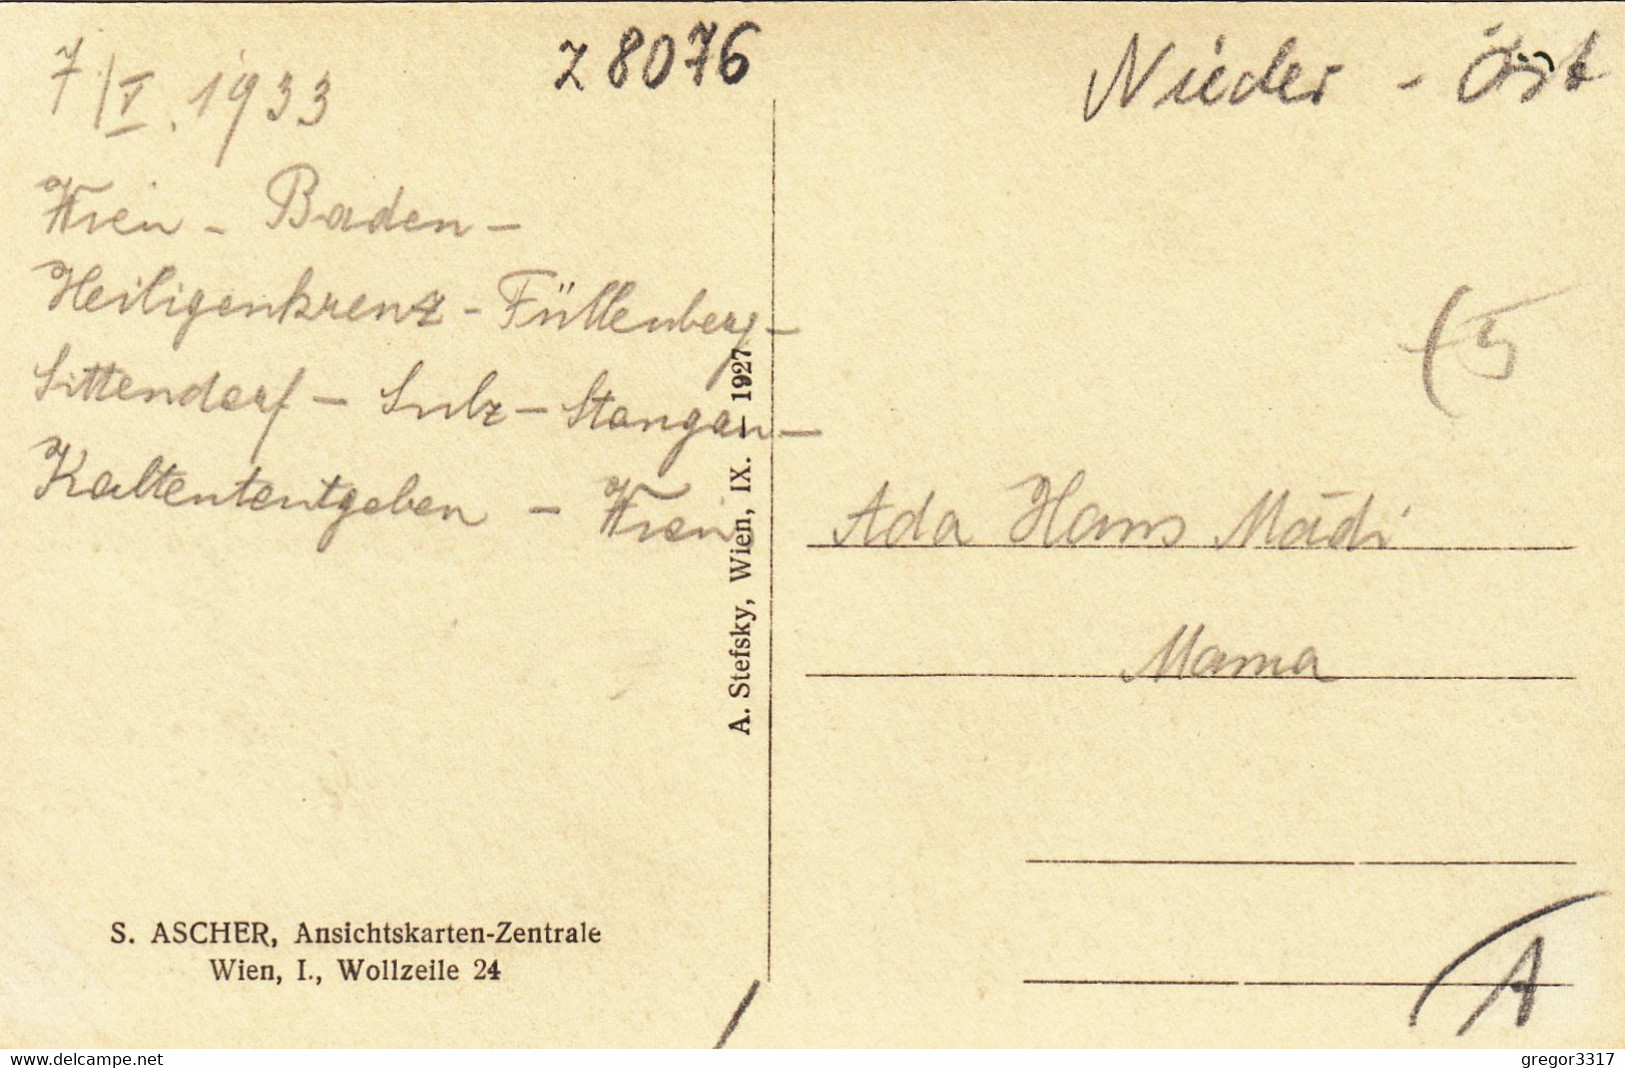 7/I. 1933
z 8076
Nieder - Öst
Wien - Baden -
Heiligenkreuz - Füllenberg -
Sittendorf - Sulz - Stangau -
Kaltententgeben - Wien
A. Stefsky, Wien, IX. — 1927
(5
Ada Hans Mädi
Mama
S. ASCHER, Ansichtskarten-Zentrale
Wien, I., Wollzeile 24
A
www.delcampe.net
gregor3317